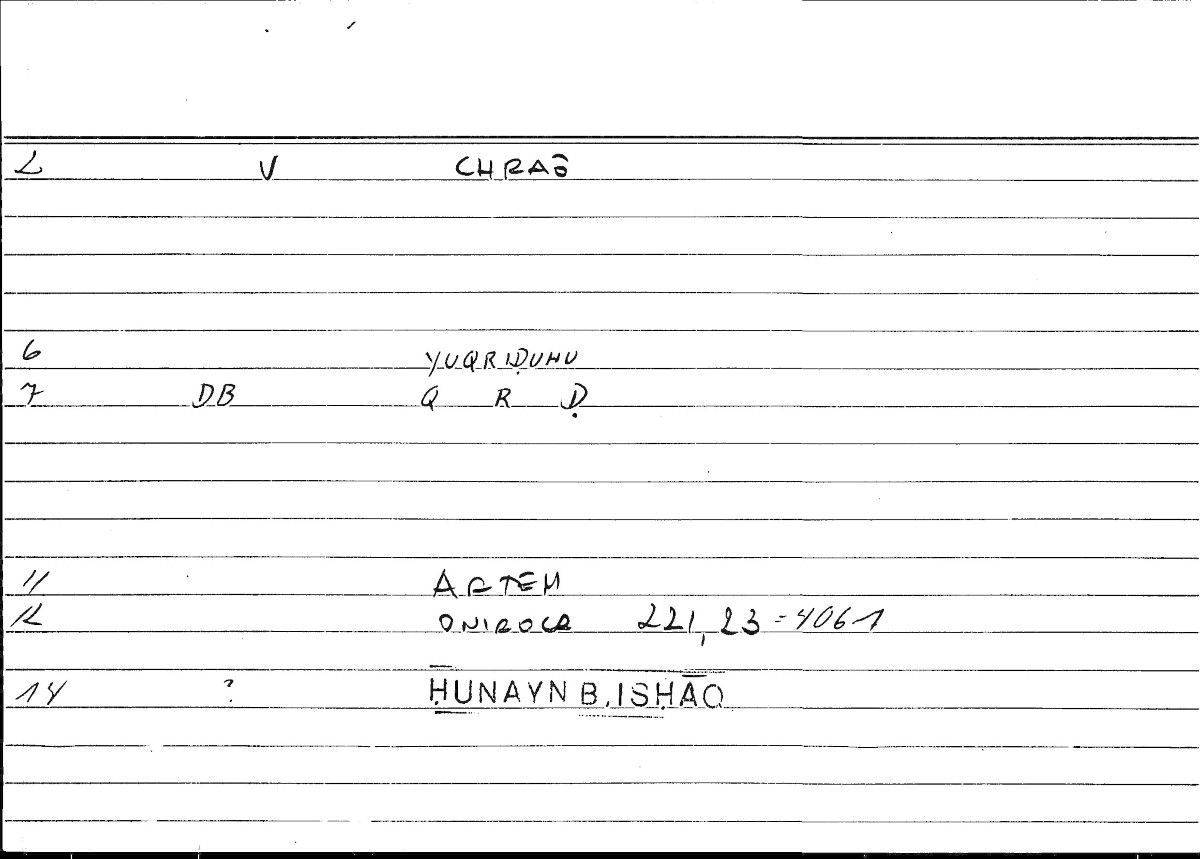 2 V CHRAŌ
6 YUQRIḌUHU
7 DB Q R Ḍ
11 ARTEM
12 ONIROCR 221,23 = 4061
14 ? ḤUNAYN B. ISḤĀQ